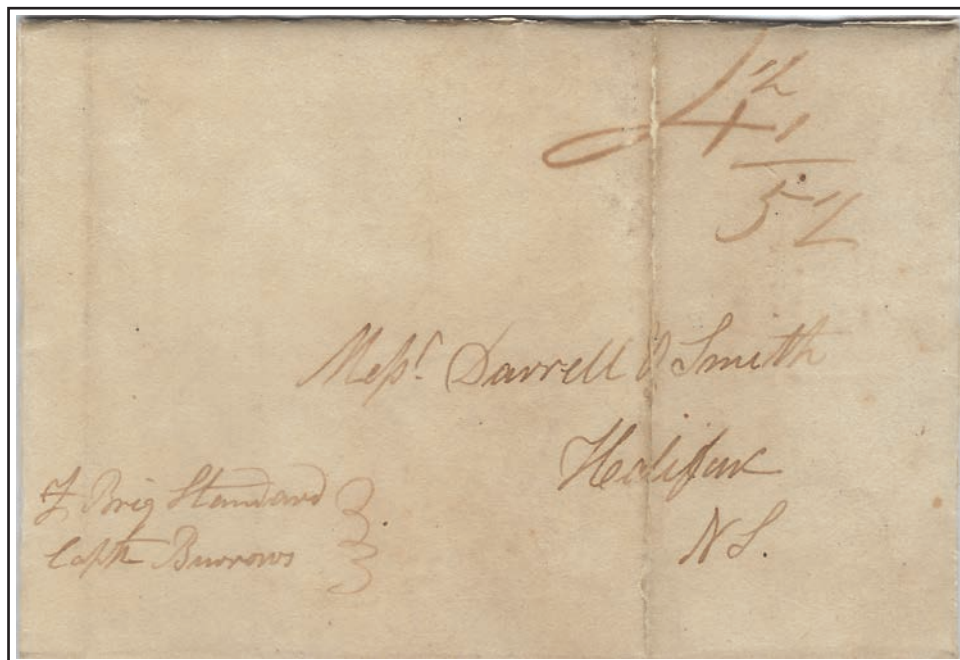 4 ½
1
5 ½
Messrs Darrell & Smith
Halifax
N S.
⅌ Brig Standard
Captn Burrows